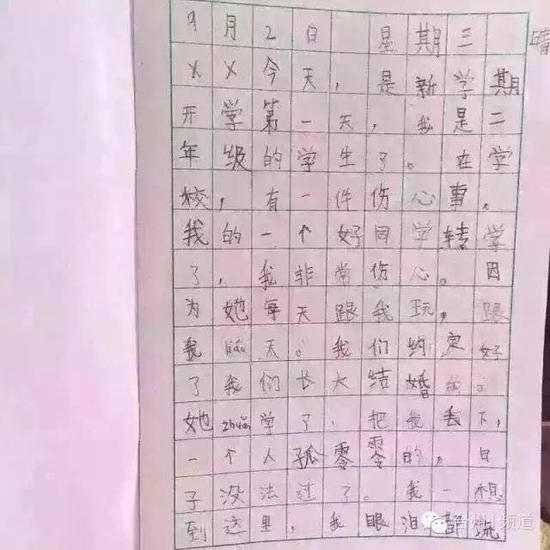 9月2日 星期三 晴
××今天，是新学期
开学第一天，我是二
年级的学生了。在学
校，有一件伤心事。
我的一个好同学转学
了，我非常伤心。因
为她每天跟我玩，跟
我liáo天。我们约定好
了我们长大结婚的。
她zhuǎn学了，把我丢下，
一个人孤零零的，日
子没法过了。我一想
到这里，我眼泪都流
台州频道